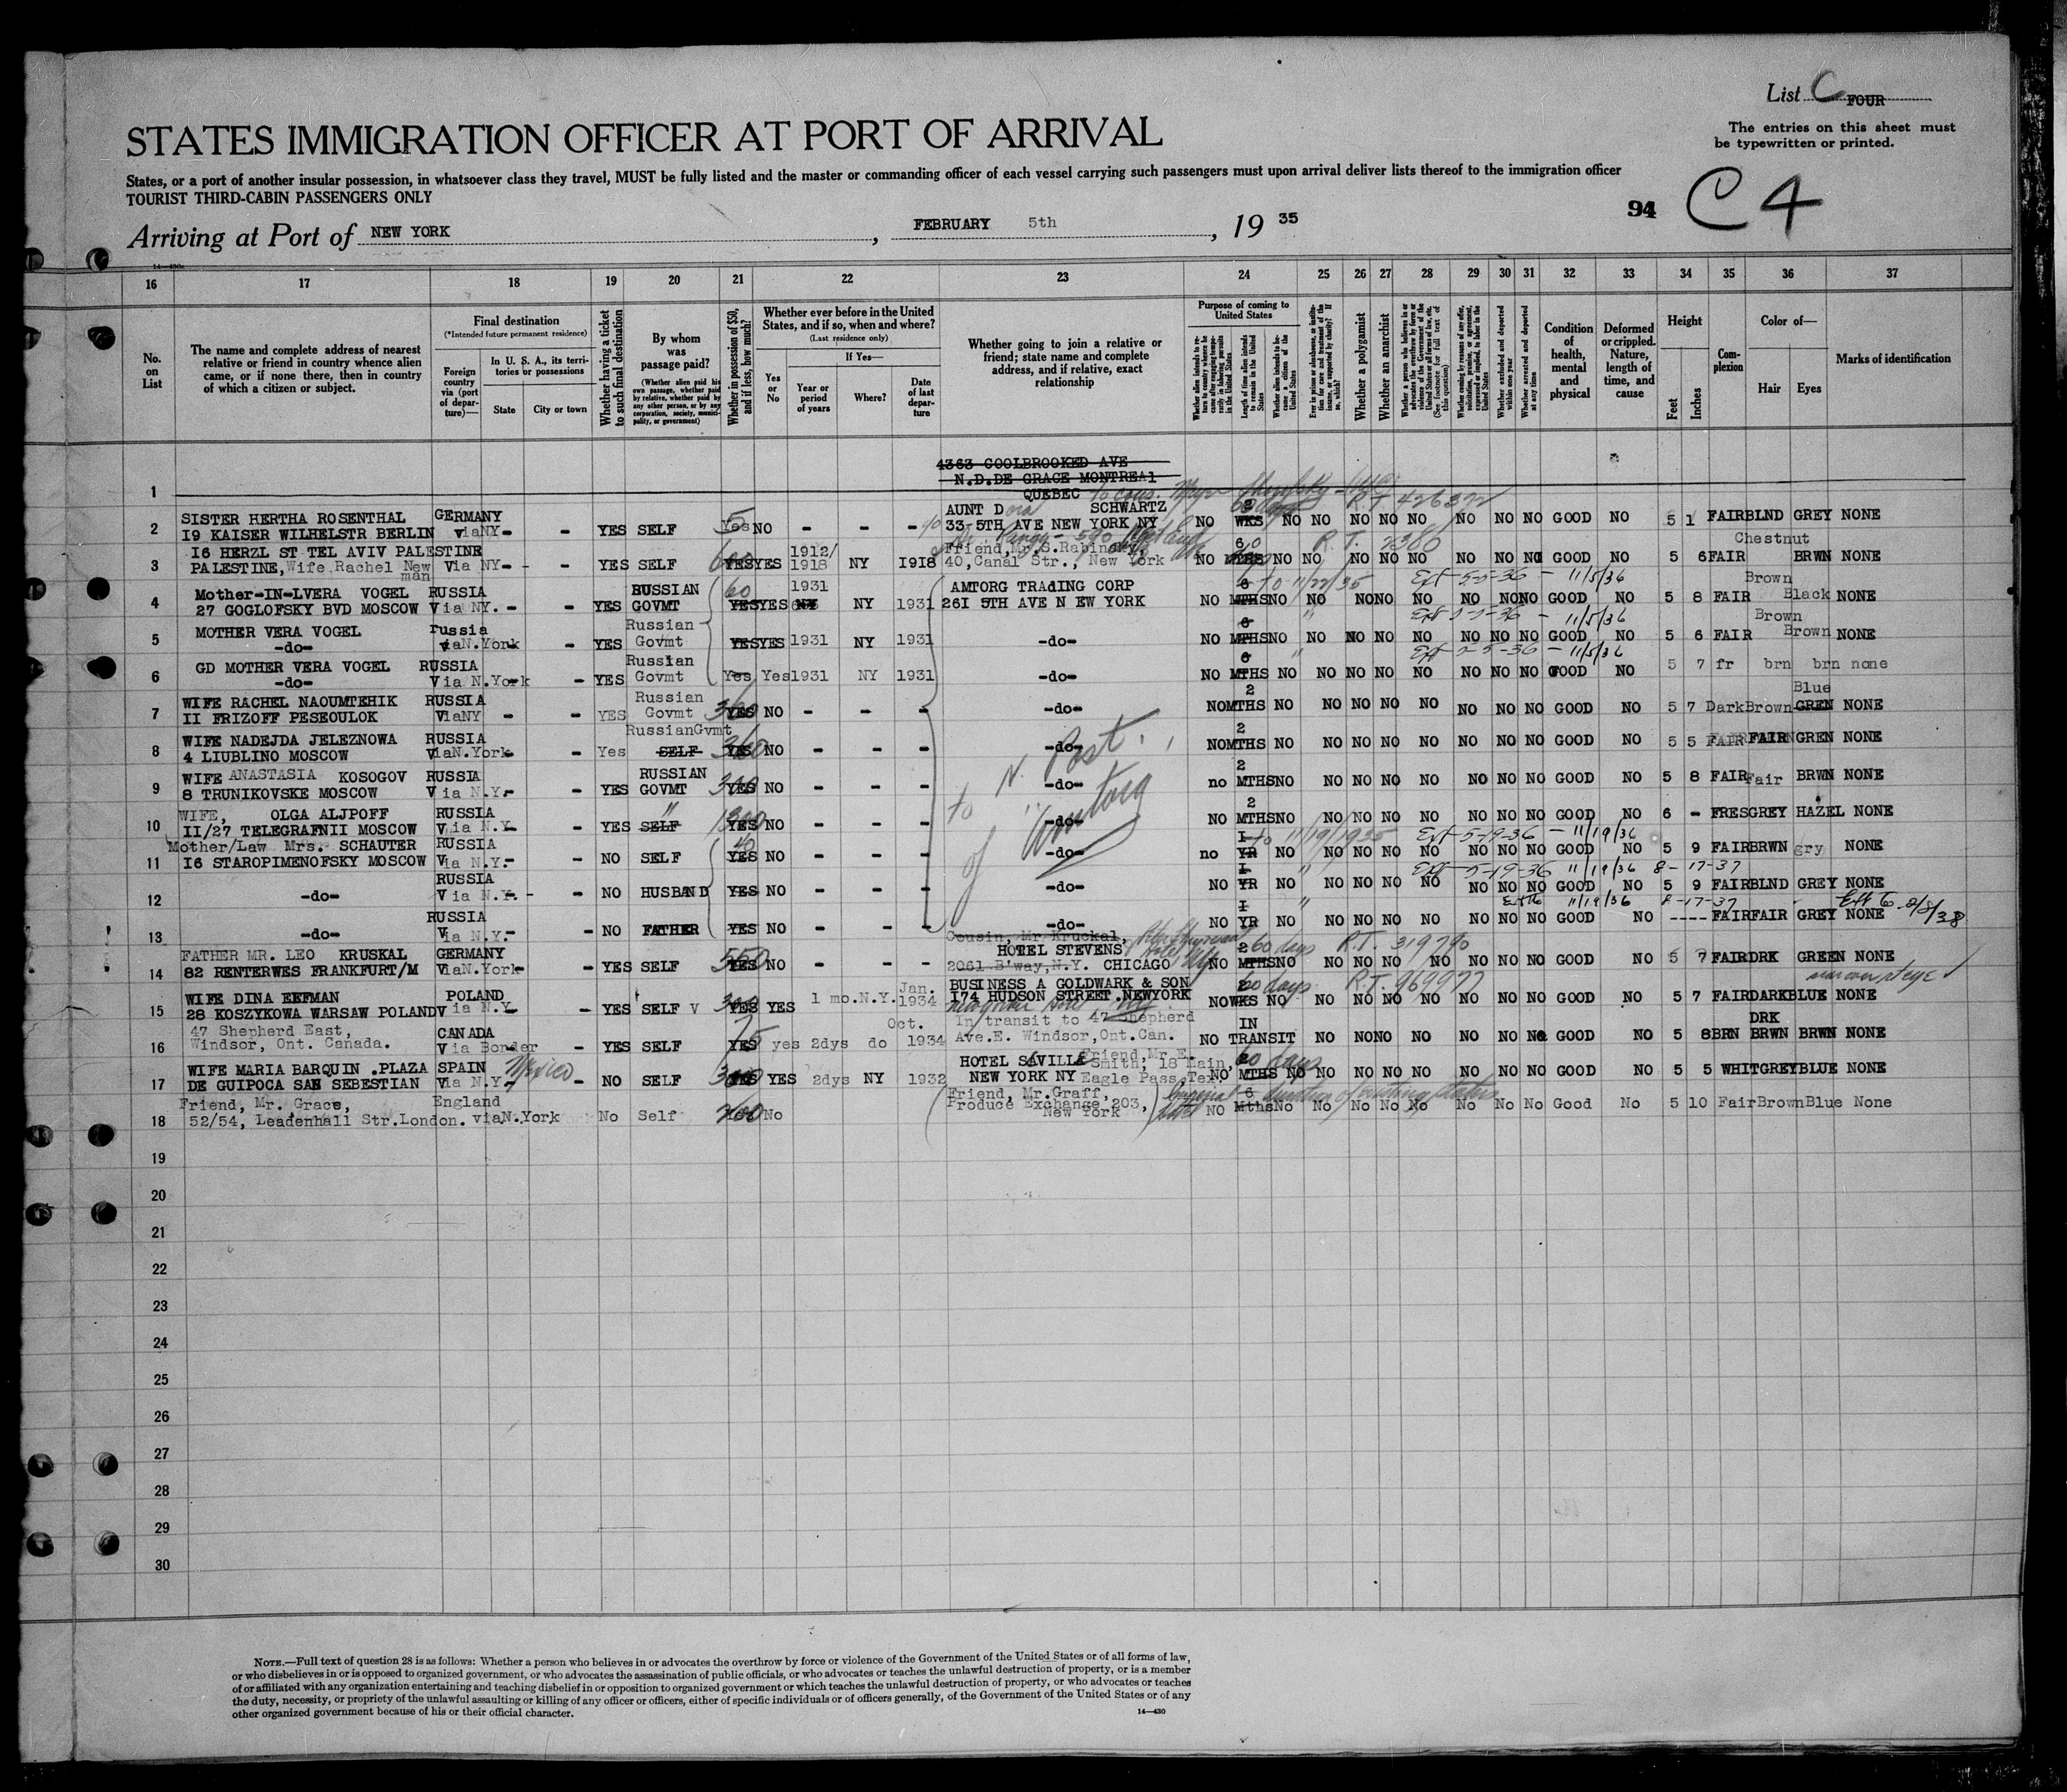 List C FOUR
The entries on this sheet must
be typewritten or printed.
STATES IMMIGRATION OFFICER AT PORT OF ARRIVAL
States, or a port of another insular possession, in whatsoever class they travel, MUST be fully listed and the master or commanding officer of each vessel carrying such passengers must upon arrival deliver lists thereof to the immigration officer
TOURIST THIRD-CABIN PASSENGERS ONLY
94 C 4
Arriving at Port of NEW YORK, FEBRUARY 5th, 19 35
14—430
16 17 18 19 20 21 22 23 24 25 26 27 28 29 30 31 32 33 34 35 36 37
No. on List
The name and complete address of nearest relative or friend in country whence alien came, or if none there, then in country of which a citizen or subject.
Final destination
(*Intended future permanent residence)
Foreign country via (port of departure)—
In U. S. A., its territories or possessions
State
City or town
Whether having a ticket to such final destination
By whom was passage paid?
(Whether alien paid his own passage, whether paid by relative, whether paid by any other person, or by any corporation, society, municipality, or government)
Whether in possession of $50, and if less, how much?
Whether ever before in the United States, and if so, when and where?
(Last residence only)
Yes or No
If Yes—
Year or period of years
Where?
Date of last departure
Whether going to join a relative or friend; state name and complete address, and if relative, exact relationship
Purpose of coming to United States
Length of time alien intends to remain in the United States
Whether alien intends to become a citizen of the United States
Whether a polygamist
Whether an anarchist
Condition of health, mental and physical
Deformed or crippled. Nature, length of time, and cause
Height
Feet
Inches
Complexion
Color of—
Hair
Eyes
Marks of identification
4363 COOLBROOKED AVE
N.D.DE GRACE MONTREAl
1 QUEBEC
SISTER HERTHA ROSENTHAL GERMANY AUNT Dora SCHWARTZ
2 I9 KAISER WILHELSTR BERLIN viaNY- - YES SELF Yes NO - - - 33-5TH AVE NEW YORK NY NO WKS NO NO NO NO NO NO NO NO GOOD NO 5 1 FAIR BLND GREY NONE
I6 HERZL ST TEL AVIV PALESTINE 1912/ Friend, Mr.S.Rabinsky, Chestnut
3 PALESTINE, Wife Rachel Newman Via NY- - - YES SELF YES YES 1918 NY I9I8 40,Canal Str., New York NO MTHS NO NO NO NO NO NO NO NO GOOD NO 5 6 FAIR BRWN NONE
Mother-IN-LVERA VOGEL RUSSIA RUSSIAN 60 1931 AMTORG TRAdING CORP 6 to 11/22/35 Ext 5-5-36 - 11/5/36 Brown
4 27 GOGLOFSKY BVD MOSCOW Via NY. - - YES GOVMT YES YES NY 1931 26I 5TH AVE N EW YORK NO MTHS NO NO NO NO NO NO NO NO GOOD NO 5 8 FAIR Black NONE
MOTHER VERA VOGEL russia Russian 6 " 11/5/36 Brown
5 -do- viaN.York - YES Govmt YES YES 1931 NY 1931 -do- NO MTHS NO NO NO NO NO NO NO NO GOOD NO 5 6 FAIR Brown NONE
GD MOTHER VERA VOGEL RUSSIA Russian 6 " 11/5/36
6 -do- Via N.York - YES Govmt Yes Yes 1931 NY 1931 -do- NO MTHS NO NO NO NO NO NO NO NO GOOD NO 5 7 fr brn brn none
WIFE RACHEL NAOUMTEHIK RUSSIA Russian 2 Blue
7 II FRIZOFF PESEOULOK ViaNY - - YES Govmt YES NO - - - -do- NO MTHS NO NO NO NO NO NO NO NO GOOD NO 5 7 Dark Brown GREN NONE
WIFE NADEJDA JELEZNOWA RUSSIA RussianGvmt 2
8 4 LIUBLINO MOSCOW ViaN.York - Yes SELF YES NO - - - -do- NO MTHS NO NO NO NO NO NO NO NO GOOD NO 5 5 FAIR FAIR GREN NONE
WIFE ANASTASIA KOSOGOV RUSSIA RUSSIAN 2
9 8 TRUNIKOVSKE MOSCOW Via N.Y.- - YES GOVMT 300 YES NO - - - -do- no MTHS NO NO NO NO NO NO NO NO GOOD NO 5 8 FAIR Fair BRWN NONE
WIFE, OLGA ALJPOFF RUSSIA " 2
10 II/27 TELEGRAFNII MOSCOW Via N.Y- - YES SELF YES NO - - - -do- NO MTHS NO NO NO NO NO NO NO NO GOOD NO 6 - FRES GREY HAZEL NONE
Mother/Law Mrs. SCHAUTER RUSSIA 40 I to 11/19/1935 Ext 5-19-36 - 11/19/36
11 I6 STAROPIMENOFSKY MOSCOW Via N.Y.- - NO SELF YES NO - - - -do- no YR NO NO NO NO NO NO NO NO GOOD NO 5 9 FAIR BRWN gry NONE
RUSSIA I " Ext 5-19-36 11/19/36 8-17-37
12 -do- Via N.Y. - - NO HUSBAND YES NO - - - -do- NO YR NO NO NO NO NO NO NO NO GOOD NO 5 9 FAIR BLND GREY NONE
RUSSIA I " 11/19/36 8-17-37 2/8/38
13 -do- Via N.Y.- - NO FATHER YES NO - - - -do- NO YR NO NO NO NO NO NO NO NO GOOD NO ---- FAIR FAIR GREY NONE
to N. Post.
of Amtorg
Cousin, Mr Kruckal,
FATHER MR. LEO KRUSKAL GERMANY HOTEL STEVENS 2 60 days R.T. 319790
14 82 RENTERWES FRANKFURT/M ViaN.York- - YES SELF 550 YES NO - - - 2061-B'way,N.Y. CHICAGO NO MTHS NO NO NO NO NO NO NO NO GOOD NO 5 7 FAIR DRK GREEN NONE
WIFE DINA EEFMAN POLAND Jan. BUSINESS A GOLDWARK & SON 60 days R.T. 969977
15 28 KOSZYKOWA WARSAW POLAND Via N.Y- - YES SELF V 300 YES YES 1 mo.N.Y. 1934 I74 HUDSON STREET NEWYORK NO WKS NO NO NO NO NO NO NO NO GOOD NO 5 7 FAIR DARK BLUE NONE
47 Shepherd East, CANADA Oct. In transit to 47 Shepherd IN DRK
16 Windsor, Ont. Canada. Via Border - YES SELF YES yes 2dys do 1934 Ave.E. Windsor,Ont.Can. NO TRANSIT NO NO NO NO NO NO NO GOOD NO 5 8 BRN BRWN BRWN NONE
WIFE MARIA BARQUIN .PLAZA SPAIN Mexico HOTEL SAVILLE Friend,Mr E. Smith, 18 Main, 60 days
17 DE GUIPOCA SAN SEBESTIAN Via N.Y- - NO SELF 300 YES YES 2dys NY 1932 NEW YORK NY Eagle Pass,Tex. NO MTHS NO NO NO NO NO NO NO NO GOOD NO 5 5 WHIT GREY BLUE NONE
Friend, Mr. Grace, England Friend, Mr.Graff, Produce Exchange 203, 6 duration of existing status
18 52/54, Leadenhall Str.London. viaN.York No Self 200 No New York NO Mths No No No No No No No No Good No 5 10 Fair Brown Blue None
19
20
21
22
23
24
25
26
27
28
29
30
NOTE.—Full text of question 28 is as follows: Whether a person who believes in or advocates the overthrow by force or violence of the Government of the United States or of all forms of law,
or who disbelieves in or is opposed to organized government, or who advocates the assassination of public officials, or who advocates or teaches the unlawful destruction of property, or is a member
of or affiliated with any organization entertaining and teaching disbelief in or opposition to organized government or which teaches the unlawful destruction of property, or who advocates or teaches
the duty, necessity, or propriety of the unlawful assaulting or killing of any officer or officers, either of specific individuals or of officers generally, of the Government of the United States or of any
other organized government because of his or their official character.
14—430